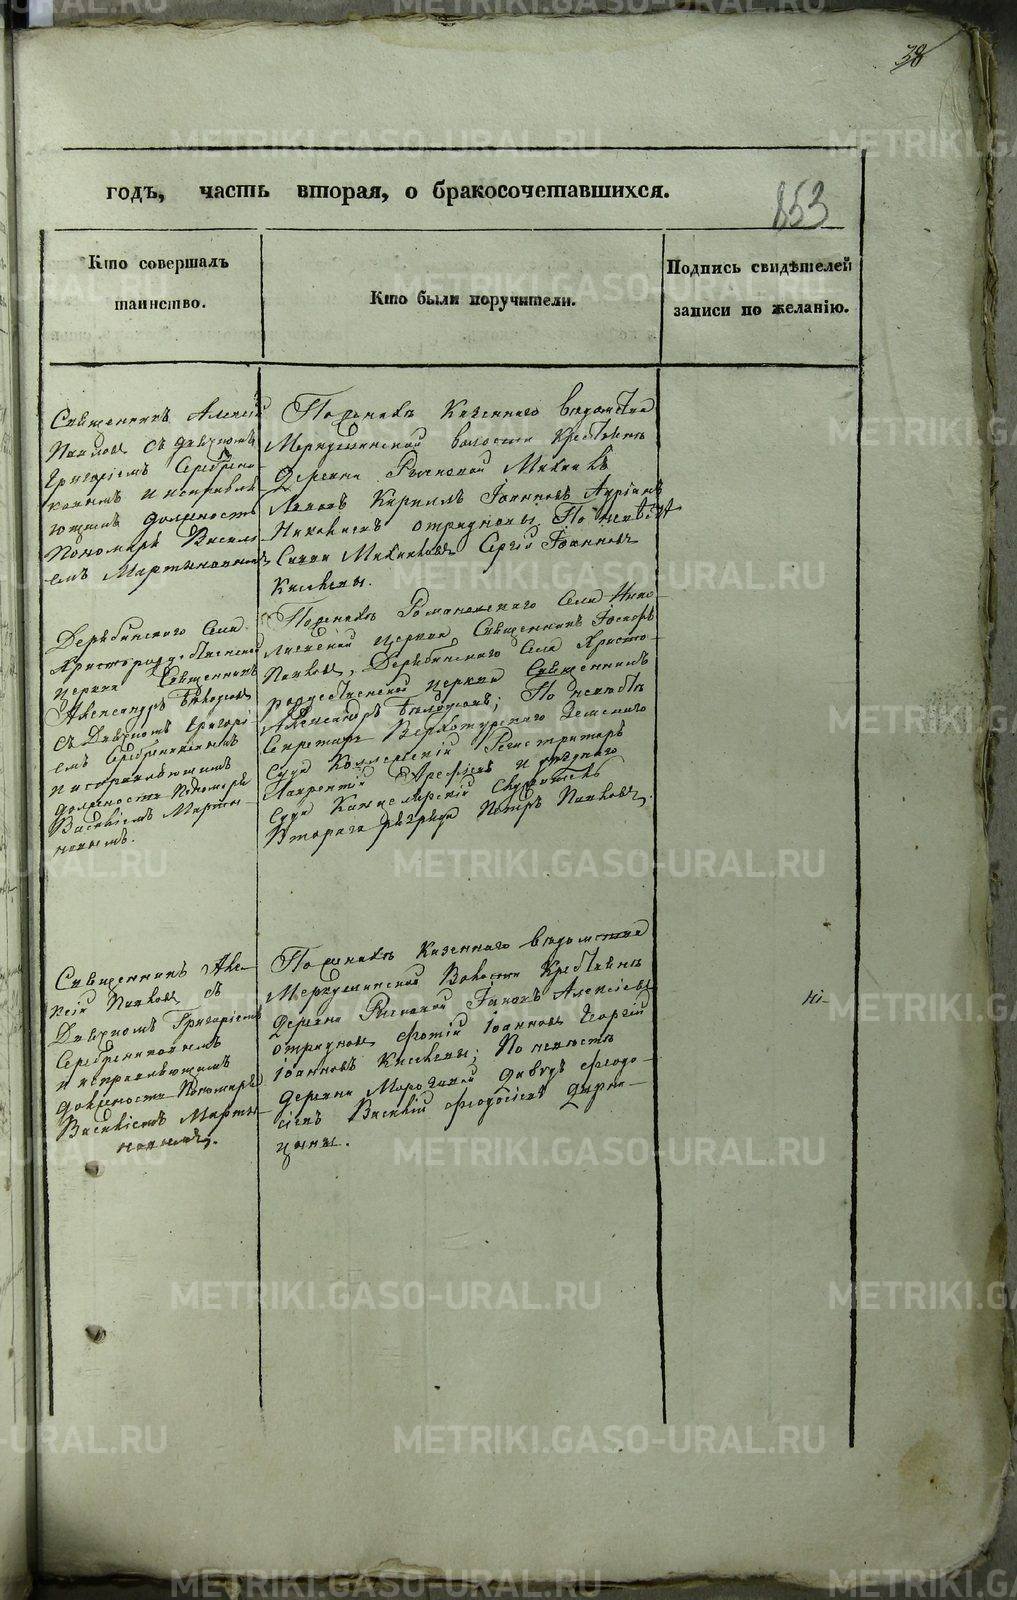 38
годъ, часть вторая, о бракосочетавшихся.
853
Кто совершалъ
таинство.
Кто были поручители.
Подпись свидѣтелей
записи по желанію.
Священникъ Алексѣй
Павловъ съ дьячкомъ
Григоріемъ Серебрени-
ковымъ и исправля-
ющимъ должность
Пономаря Василі-
емъ Мартиновымъ
По женихѣ Казеннаго вѣдомства
Меркушинской волости крестьяне
Деревни Рычковой
Кириллъ Іоанновъ
По невѣстѣ
Сергій Іоанновъ
Киселевы.
Дерябинскаго Села
Христорождественской
церкви Священникъ
Александръ
съ Дьячкомъ Григорі-
емъ Серебрениковымъ
и исправляющимъ
должность Пономаря
Василіемъ Марти-
новымъ.
По женихѣ Романовскаго Села Нико-
лаевской церкви Священникъ
Павловъ, Дерябинскаго Села Христо-
рождественской церкви Священникъ
Александръ По невѣстѣ
Секретарь Верхотурскаго Земскаго
Суда Коллежскій Регистраторъ
Лаврентій Арефьевъ и уѣзднаго
Суда Канцелярскій Служитель
Втораго разряда Петръ Павловъ.
Священникъ Але-
ксѣй Павловъ съ
Дьячкомъ Григоріемъ
Серебрениковымъ
и исправляющимъ
должность Пономаря
Василіемъ Марти-
новымъ.
По женихѣ Казеннаго вѣдомства
Меркушинской Волости Крестьяне
Деревни Рычковой Алексѣевъ
Фотій Іоанновъ Георгій
Іоанновъ Киселевы; По невѣстѣ
Деревни Морозовой Давыдъ Ѳеодо-
сіевъ Василій Ѳеодосіевъ
METRIKI.GASO-URAL.RU